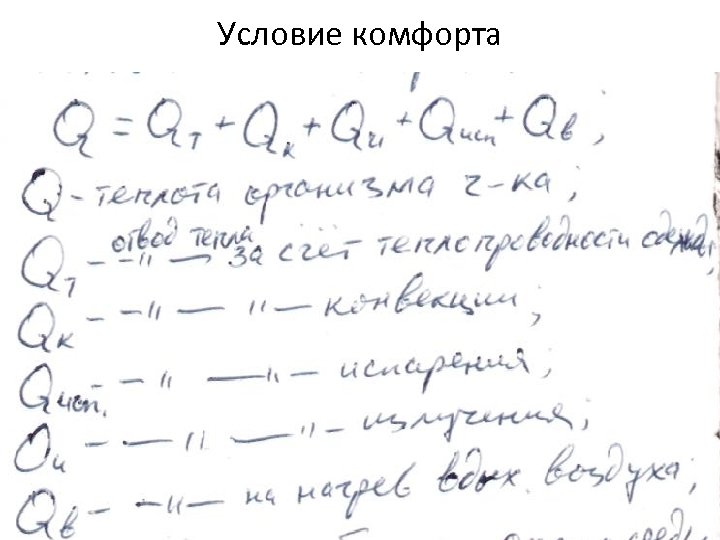 Условие комфорта
Q = Qт + Qк + Qи + Qисп + Qв ;
Q - теплота организма ч-ка ;
отвод тепла
Qт - -"- за счёт теплопроводности одежды;
Qк - -"- -"- конвекции ;
Qисп. - -"- -"- испарения ;
Qи - -"- -"- излучения ;
Qв - -"- на нагрев вдых. воздуха ;